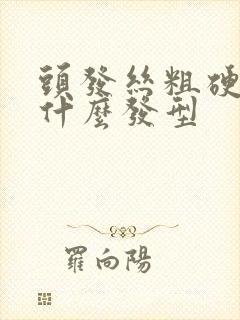 頭發絲粗硬
什麼發型
羅向陽